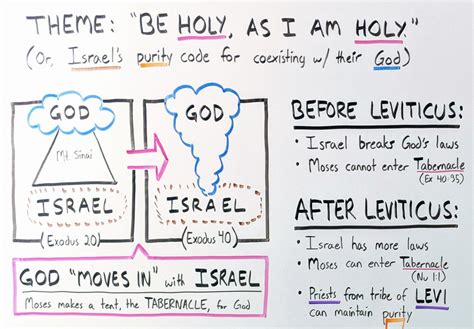 THEME: "BE HOLY, AS I AM HOLY."
(Or, Israel's purity code for coexisting w/ their God)
GOD
Mt. Sinai
ISRAEL
(Exodus 20)
GOD
ISRAEL
(Exodus 40)
GOD "MOVES IN" with ISRAEL
Moses makes a tent, the TABERNACLE, for God
BEFORE LEVITICUS:
• Israel breaks God's laws
• Moses cannot enter Tabernacle
(Ex 40:35)
AFTER LEVITICUS:
• Israel has more laws
• Moses can enter Tabernacle
(Nu 1:1)
• Priests from tribe of LEVI
can maintain purity